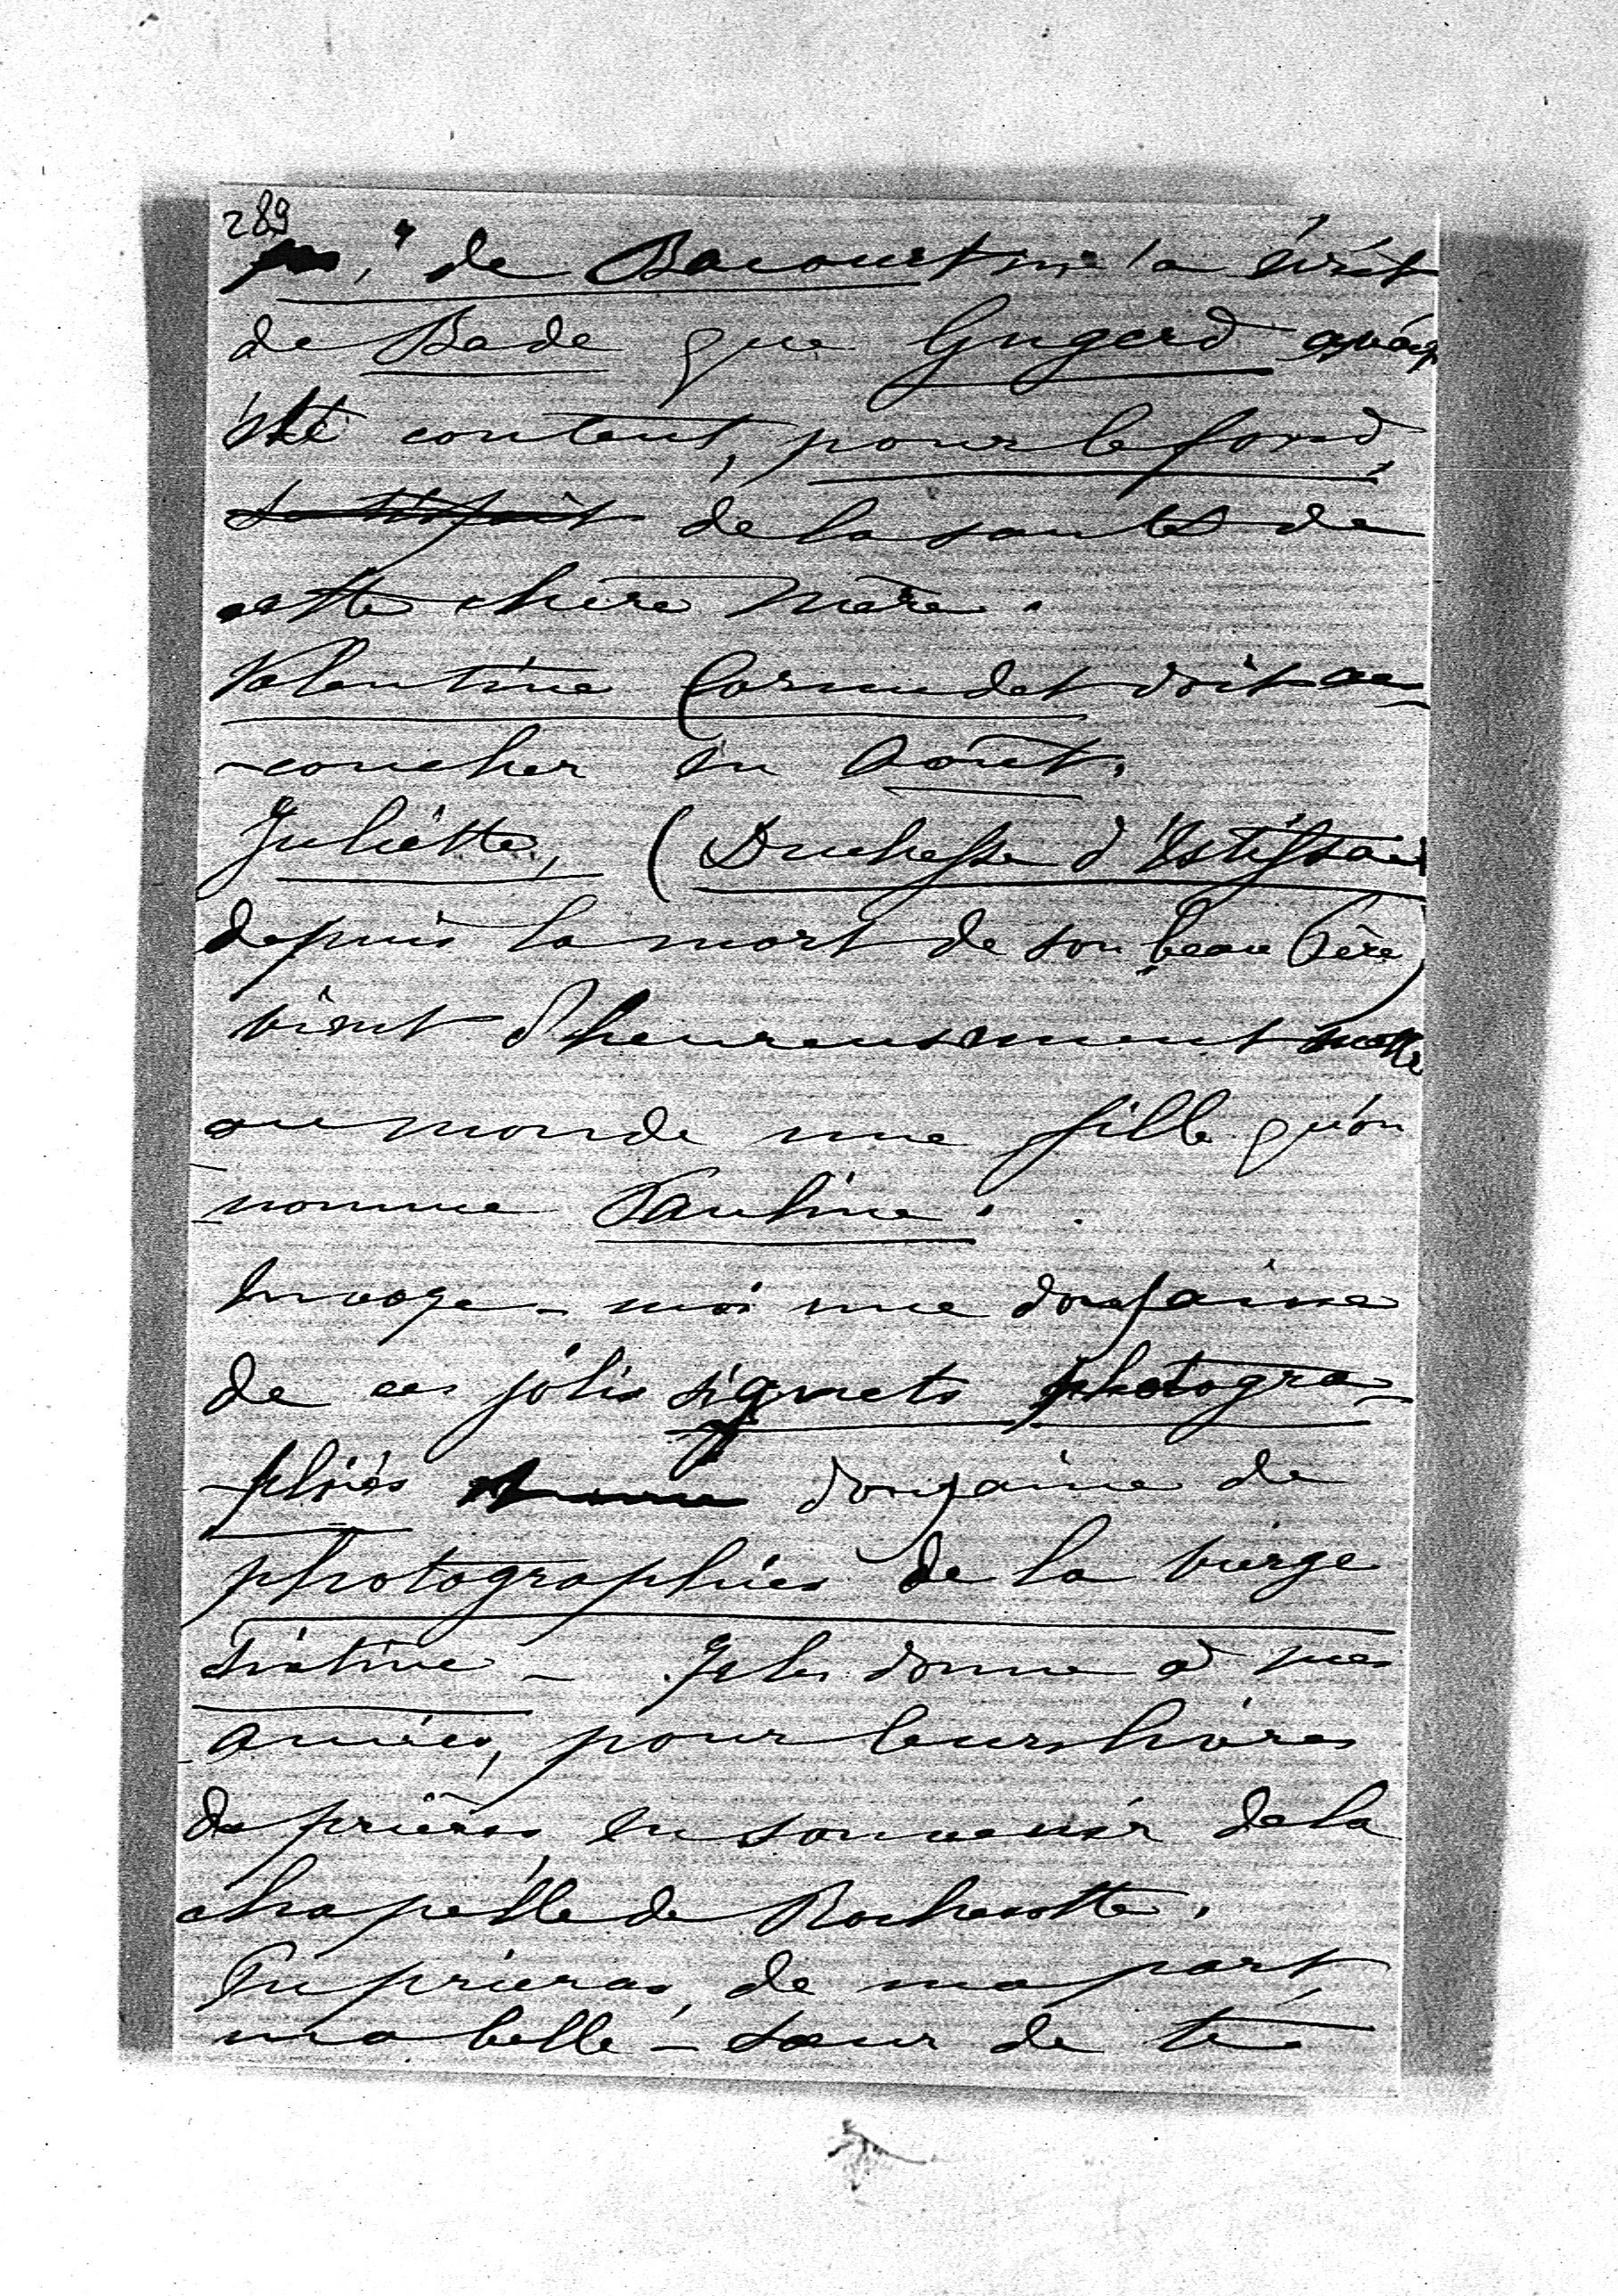 289
de Bacourt m'a écrit
de Bade que Gugerd avait
été content, pour le fond,
satisfait de la santé de
cette chère Mère.
Valentine Cornudet doit ac-
-coucher en Août.
Juliette, (Duchesse d'Estissac
depuis la mort de son beau Père)
vient d'heureusement mettre
au monde une fille qu'on
nomme Pauline.
Envoye-moi une douzaine
de ces jolis signets photogra-
-phiés douzaine de
photographies de la vierge
Sixtine - Je les donne à mes
amies, pour leurs livres
de prières, en souvenir de la
chapelle de Rochecotte.
Tu prieras, de ma part,
ma belle-soeur de te